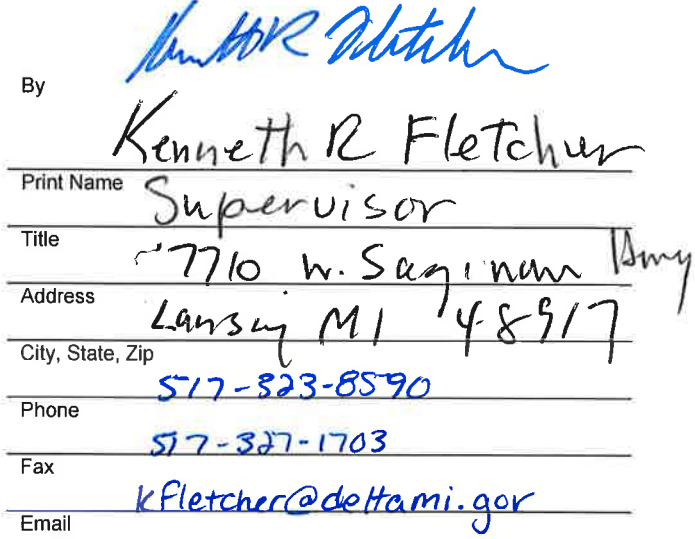 Kenneth R Fletcher
By
Kenneth R Fletcher
Print Name
Supervisor
Title
7710 W. Saginaw Hwy
Address
Lansing MI 48917
City, State, Zip
517-323-8590
Phone
517-327-1703
Fax
kfletcher@deltami.gov
Email